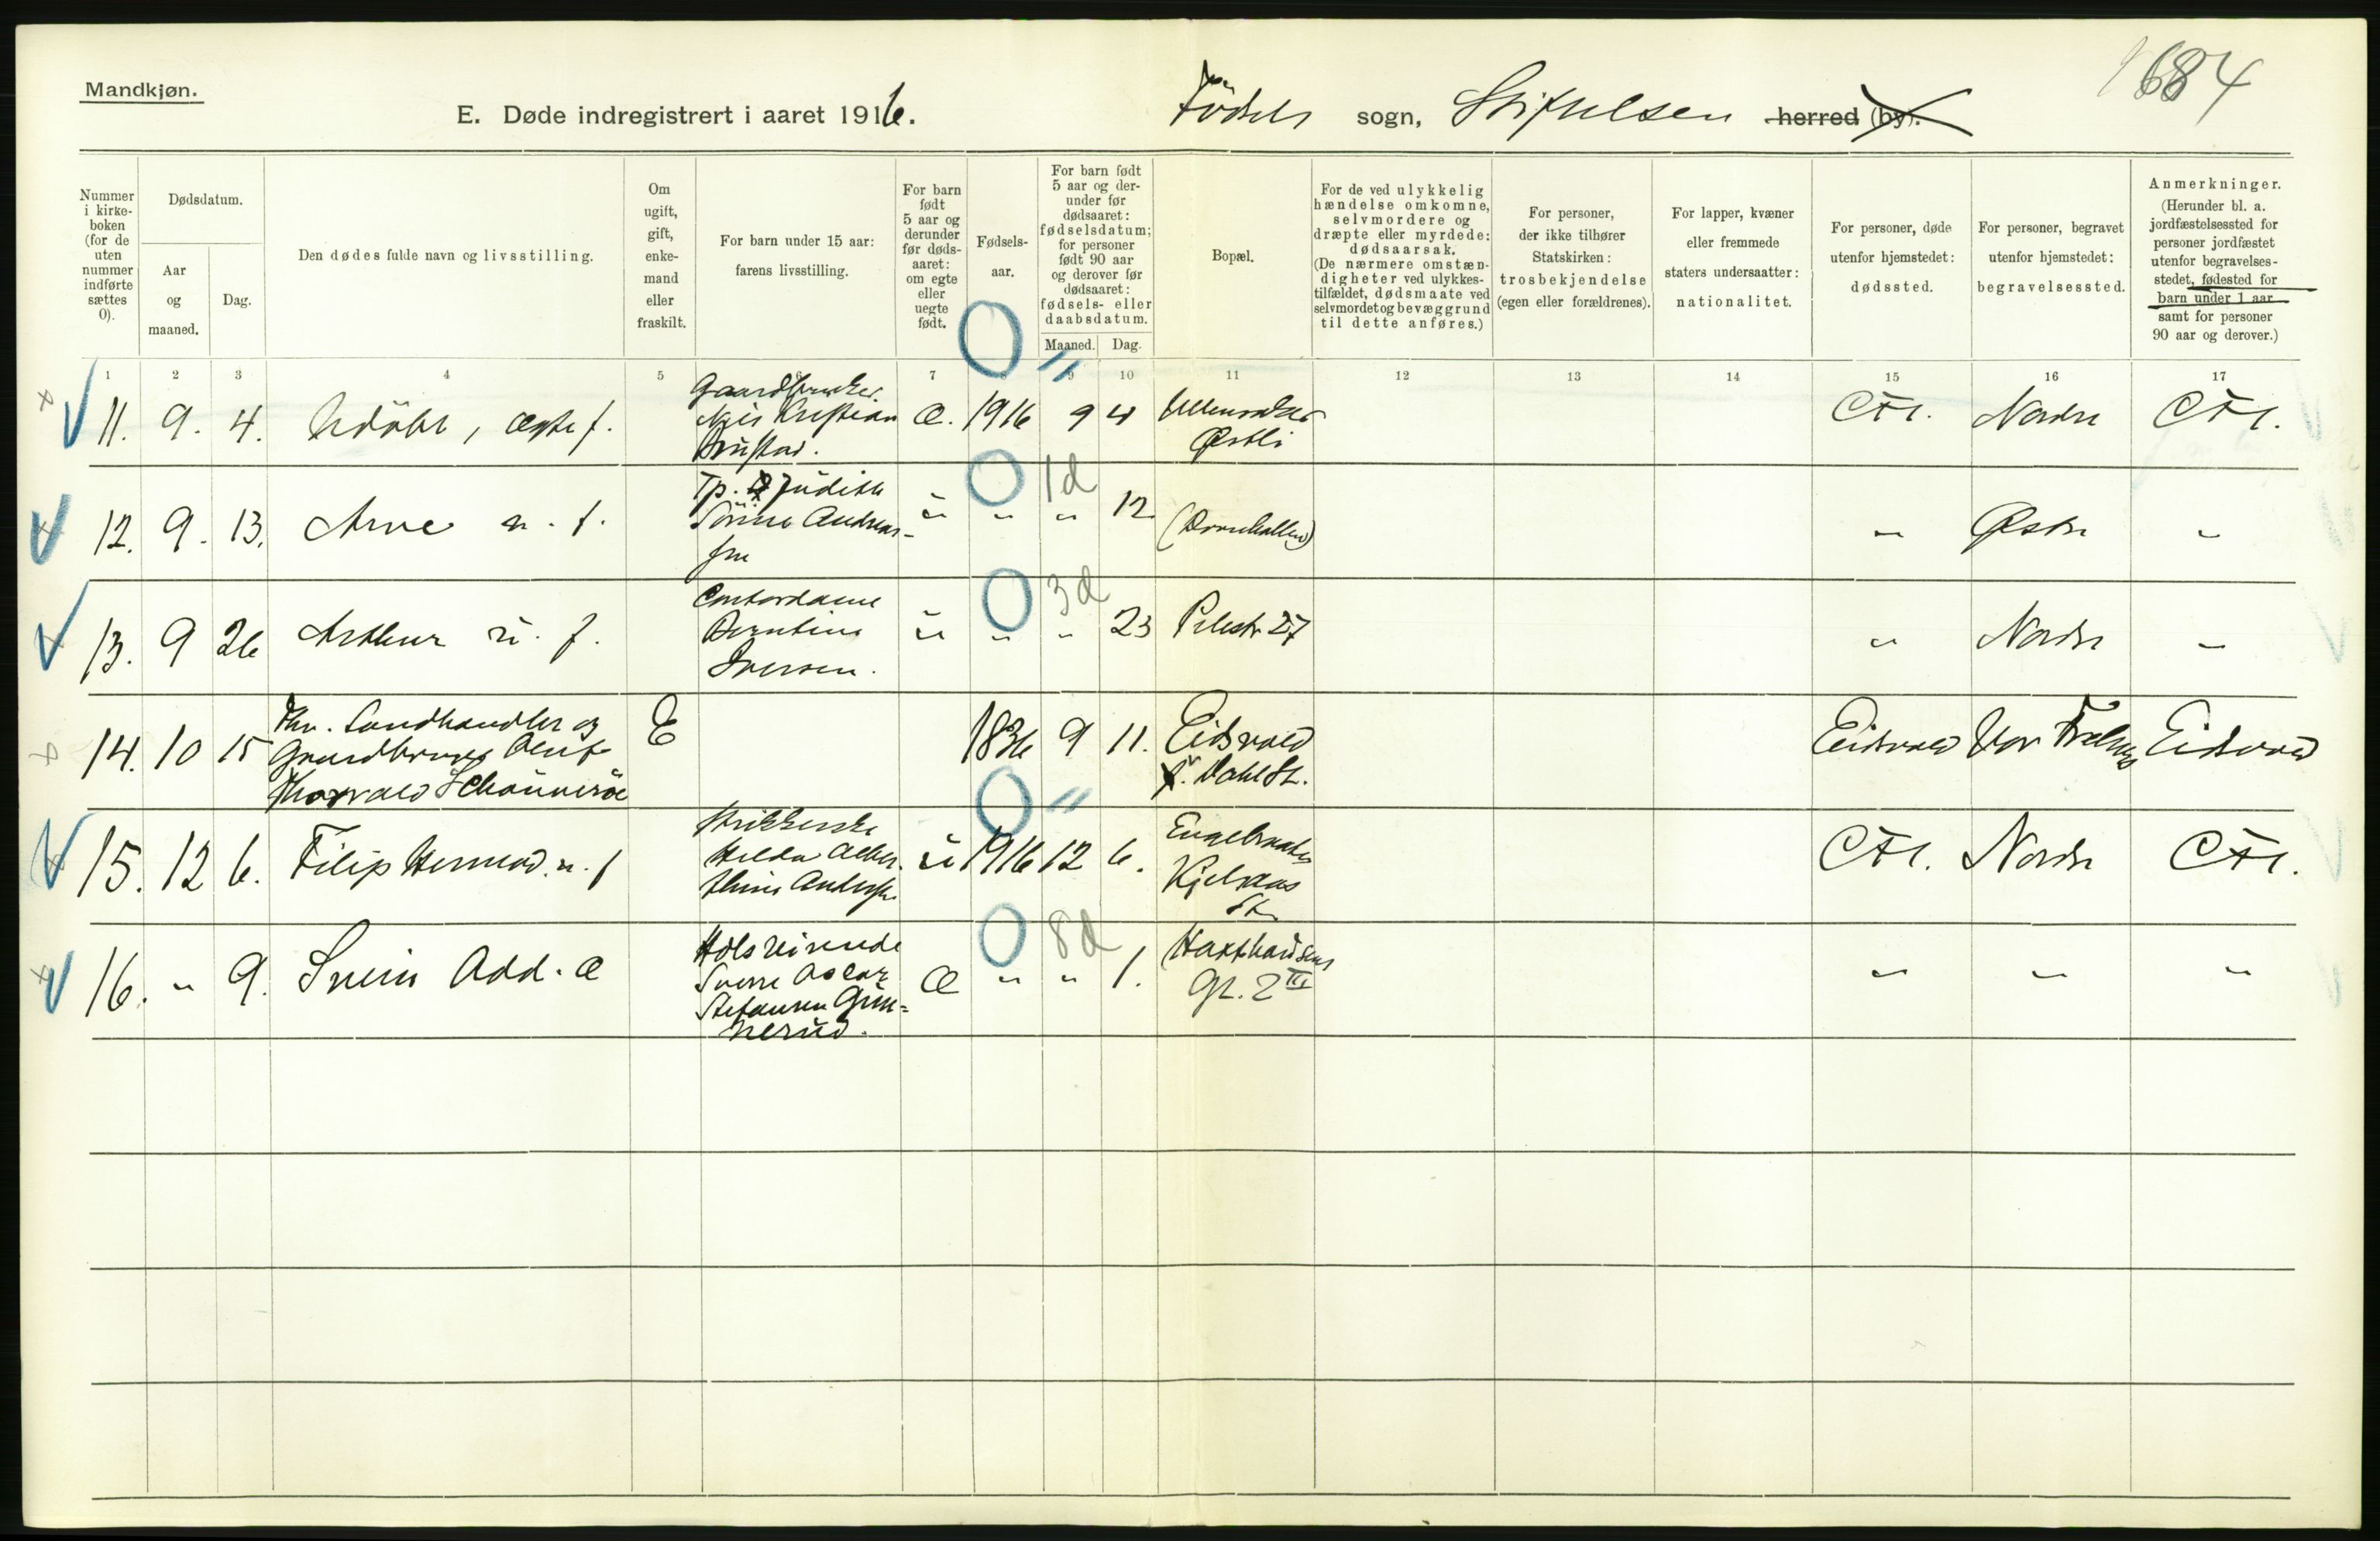 Mandkjøn.
E. Døde indregistrert i aaret 1916.
Fødsels sogn, Stiftelsen herred (by).
684
Nummer i kirkeboken (for de uten nummer indførte sættes 0).
Dødsdatum.
Aar og maaned.
Dag.
Den dødes fulde navn og livsstilling.
Om ugift, gift, enkemand eller fraskilt.
For barn under 15 aar: farens livsstilling.
For barn født 5 aar og derunder før dødsaaret: om egte eller uegte født.
Fødselsaar.
For barn født 5 aar og derunder før dødsaaret: fødselsdatum; for personer født 90 aar og derover før dødsaaret: fødsels- eller daabsdatum.
Maaned.
Dag.
Bopæl.
For de ved ulykkelig hændelse omkomne, selvmordere og dræpte eller myrdede: dødsaarsak. (De nærmere omstændigheter ved ulykkestilfældet, dødsmaate ved selvmordet og bevæggrund til dette anføres.)
For personer, der ikke tilhører Statskirken: trosbekjendelse (egen eller forældrenes).
For lapper, kvæner eller fremmede staters undersaatter: nationalitet.
For personer, døde utenfor hjemstedet: dødssted.
For personer, begravet utenfor hjemstedet: begravelsessted.
Anmerkninger. (Herunder bl. a. jordfæstelsessted for personer jordfæstet utenfor begravelsesstedet, fødested for barn under 1 aar samt for personer 90 aar og derover.)
1 2 3 4 5 6 7 8 9 10 11 12 13 14 15 16 17
11. 9. 4. Udøbt, ægte f. Gaardbruker Kristian æ. 1916 9 4 Ullensaker Østli Nordre
12. 9. 13. Arne u. f. Tp. Judith Andreassen " " " 12 " Østre "
0 1d
13. 9 26 Arthur u. f. Iversen. " " " 23 Pilestr 27 " Nordre "
0 3d
14. 10 15 Fhv. Landhandler og Gaardbruker E 1836 9 11. Eidsvold Dahl St. Eidsvold Vor Frelsers Eidsvold
15. 12 6. Filip u. f Strikkerske Hilda u 1916 12 6. Kjelsaas St. Nordre
0 "
16. " 9. Svein Odd. æ Sverre Oscar Stefansen æ " " 1. Haxthausens Gt. 2 III " " "
0 8d